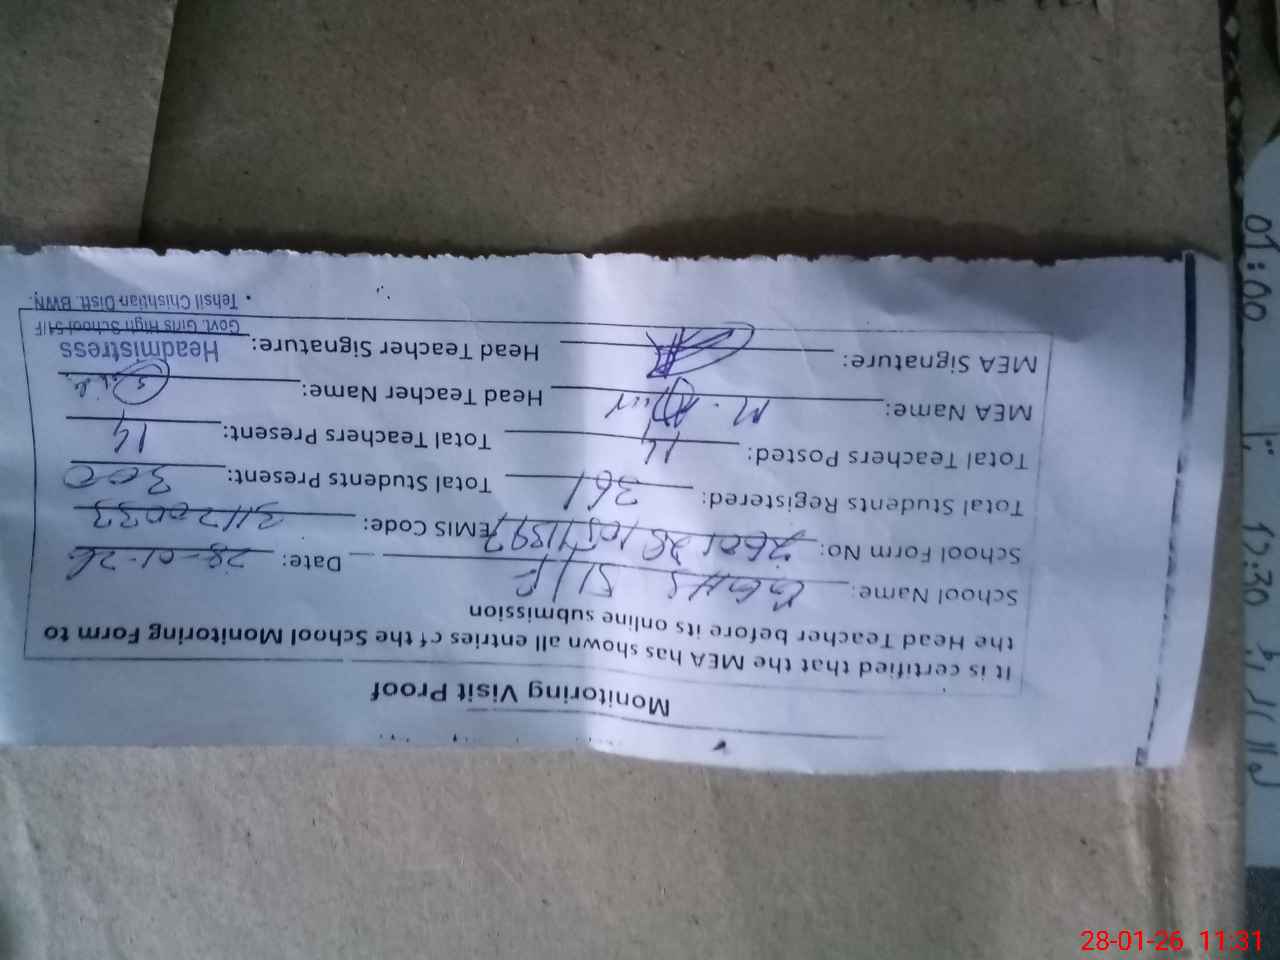 Monitoring Visit Proof
It is certified that the MEA has shown all entries of the School Monitoring Form to
the Head Teacher before its online submission
School Name: GGHS 51/F Date: 28-01-26
School Form No: EMIS Code: 31120033
Total Students Registered: 361 Total Students Present: 300
Total Teachers Posted: 14 Total Teachers Present: 14
MEA Name: Head Teacher Name:
MEA Signature: Head Teacher Signature:
Headmistress
Govt. Girls High School 51/F
Tehsil Chishtian Distt. BWN.
01:00
12:30
28-01-26 11:31